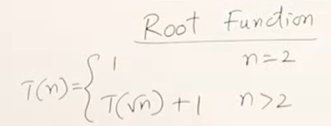 Root Function
T(n)= { 1 n=2
T(√n)+1 n>2